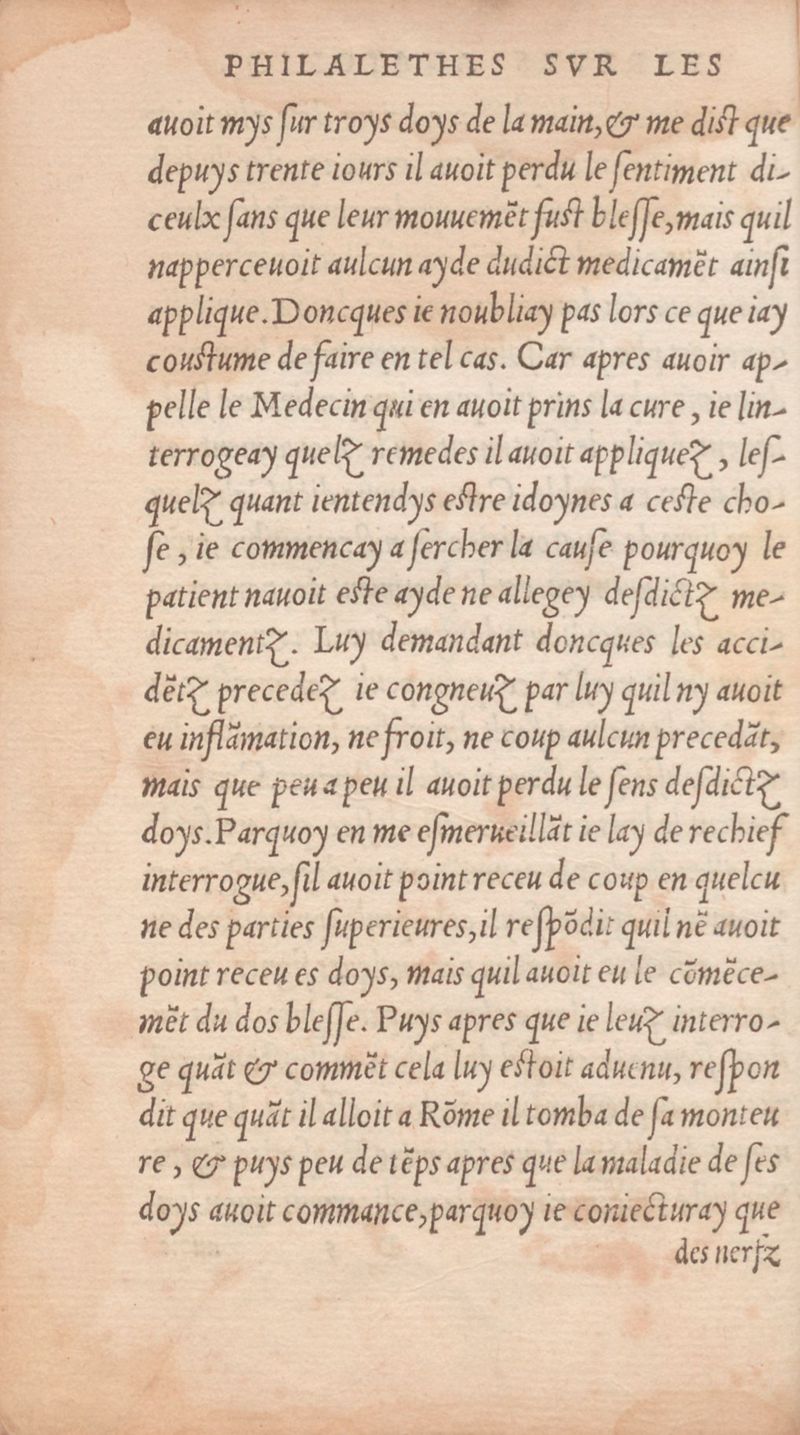 PHILALETHES SVR LES
auoit mys ſur troys doys de la main,& me diſt que
depuys trente iours il auoit perdu le ſentiment di-
ceulx ſans que leur mouuemēt fuſt bleſſe,mais quil
napperceuoit aulcun ayde dudict medicamēt ainſi
applique.Doncques ie noubliay pas lors ce que iay
couſtume de faire en tel cas. Car apres auoir ap-
pelle le Medecin qui en auoit prins la cure , ie lin-
terrogeay quelz remedes il auoit appliquez , leſ-
quelz quant ientendys eſtre idoynes a ceſte cho-
ſe , ie commencay a ſercher la cauſe pourquoy le
patient nauoit eſte ayde ne allegey deſdictz me-
dicamentz. Luy demandant doncques les acci-
dētz precedez ie congneuz par luy quil ny auoit
eu inflāmation, ne froit, ne coup aulcun precedāt,
mais que peu a peu il auoit perdu le ſens deſdictz
doys.Parquoy en me eſmerueillāt ie lay de rechief
interrogue,ſil auoit point receu de coup en quelcu
ne des parties ſuperieures,il reſpōdit quil nē auoit
point receu es doys, mais quil auoit eu le cōmēce-
mēt du dos bleſſe. Puys apres que ie leuz interro-
ge quāt & commēt cela luy eſtoit aduenu, reſpon
dit que quāt il alloit a Rōme il tomba de ſa monteu
re , & puys peu de tēps apres que la maladie de ſes
doys auoit commance,parquoy ie coniecturay que
des nerfz